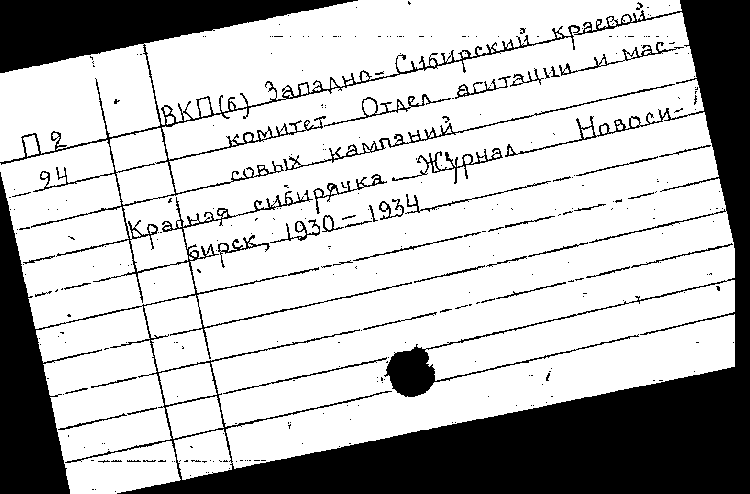 ВКП(б) Западно-Сибирский краевой
комитет. Отдел агитации и мас-
совых кампаний
П 2
94
Красная сибирячка. Журнал. Новоси-
бирск, 1930 – 1934